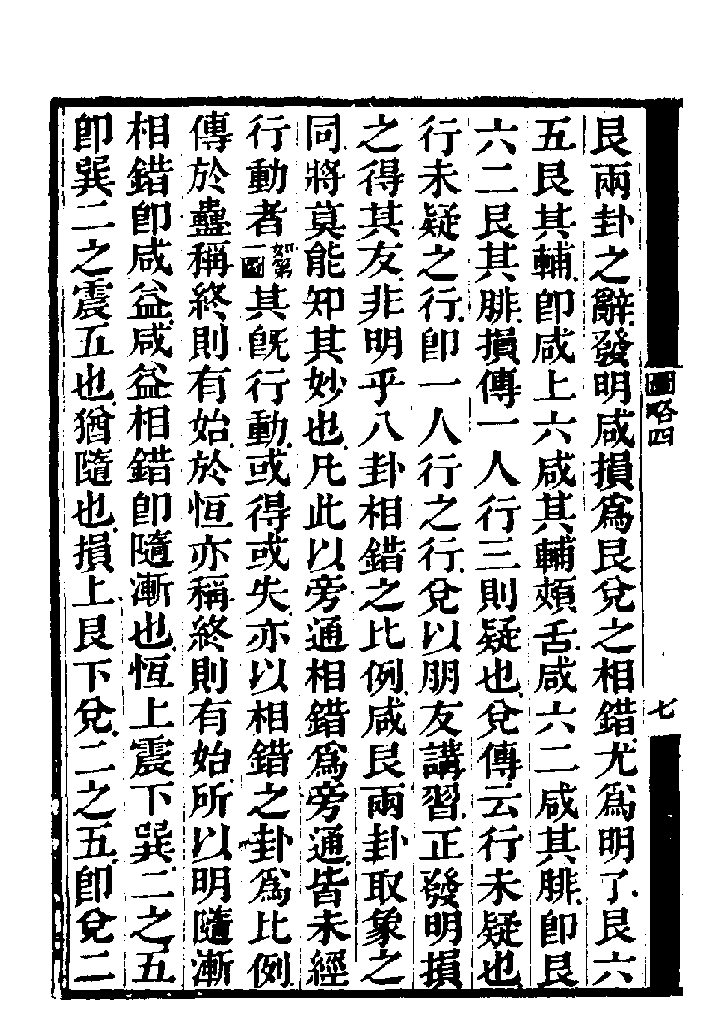 圖略四
七
艮兩卦之辭發明咸損爲艮兌之相錯尤爲明了艮六
五艮其輔卽咸上六咸其輔頰舌咸六二咸其腓卽艮
六二艮其腓損傳一人行三則疑也兌傳云行未疑也
行未疑之行卽一人行之行兌以朋友講習正發明損
之得其友非明乎八卦相錯之比例咸艮兩卦取象之
同將莫能知其妙也凡此以旁通相錯爲旁通皆未經
行動者如第一圖其旣行動或得或失亦以相錯之卦爲比例
傳於蠱稱終則有始於恒亦稱終則有始所以明隨漸
相錯卽咸益咸益相錯卽隨漸也恆上震下巽二之五
卽巽二之震五也猶隨也損上艮下兌二之五卽兌二